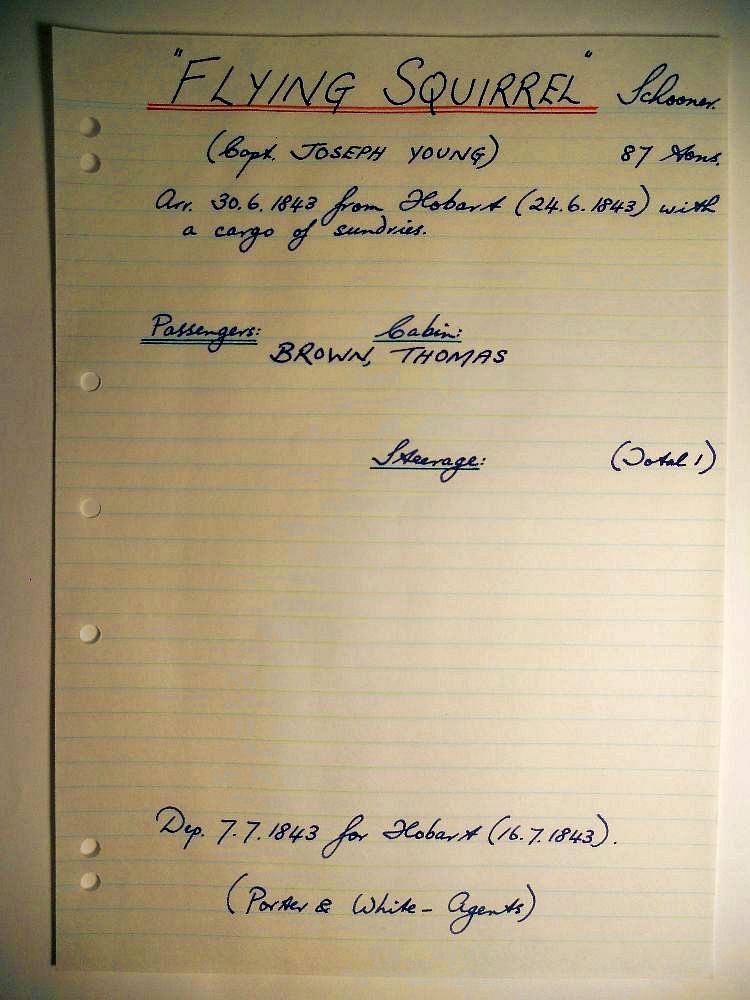 "FLYING SQUIRREL" Schooner.
(Capt. JOSEPH YOUNG) 87 tons.
Arr. 30.6.1843 from Hobart (24.6.1843) with
a cargo of sundries.
Passengers: Cabin:
BROWN, THOMAS
Steerage: (Total 1)
Dep. 7.7.1843 for Hobart (16.7.1843).
(Porter & White - Agents)